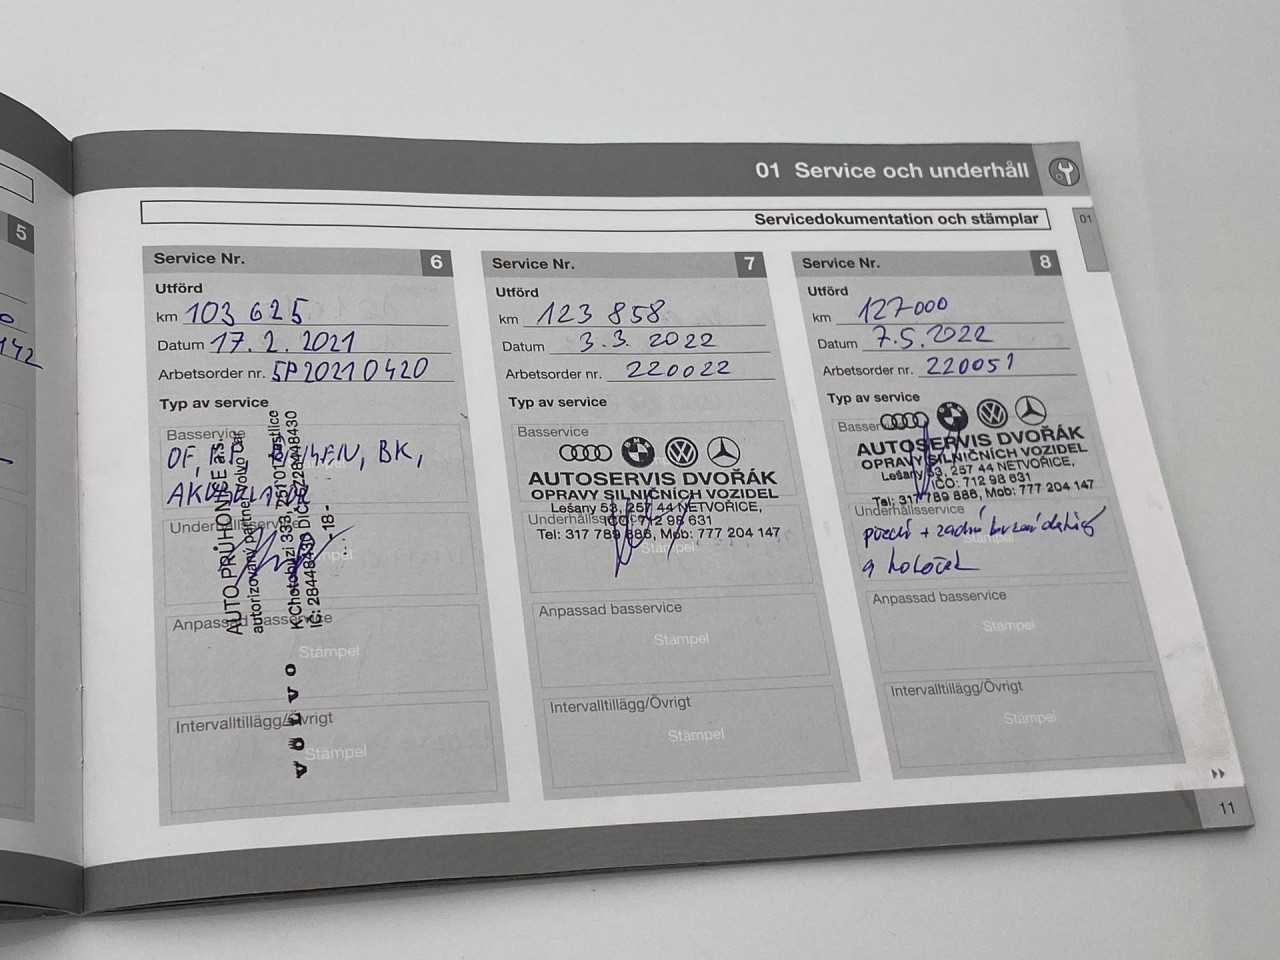 01 Service och underhåll
Servicedokumentation och stämplar
01
5
142
Service Nr. 6
Utförd
km 103 625
Datum 17. 2. 2021
Arbetsorder nr. SP20210420
Typ av service
Basservice
OF, BK,
Underhållsservice
Anpassad basservice
Stämpel
Intervalltillägg/Övrigt
Stämpel
AUTO PRŮHONICE a.s.
autorizovaný partner Volvo Car
K Chotobuzi 333, 251 01 Čestlice
IČ: 28448430 DIČ: CZ28448430
- 18 -
VOLVO
Service Nr. 7
Utförd
km 123 858
Datum 3. 3. 2022
Arbetsorder nr. 220022
Typ av service
Basservice
AUTOSERVIS DVOŘÁK
OPRAVY SILNIČNÍCH VOZIDEL
Lešany 53, 257 44 NETVOŘICE,
IČO: 712 98 631
Tel: 317 789 888, Mob: 777 204 147
Underhållsservice
Stämpel
Anpassad basservice
Stämpel
Intervalltillägg/Övrigt
Stämpel
Service Nr. 8
Utförd
km 127000
Datum 7.5.2022
Arbetsorder nr. 220051
Typ av service
Basservice
AUTOSERVIS DVOŘÁK
OPRAVY SILNIČNÍCH VOZIDEL
Lešany 53, 257 44 NETVOŘICE,
IČO: 712 98 631
Tel: 317 789 888, Mob: 777 204 147
Underhållsservice
přední + zadní brzdové
Stämpel
Anpassad basservice
Stämpel
Intervalltillägg/Övrigt
Stämpel
11